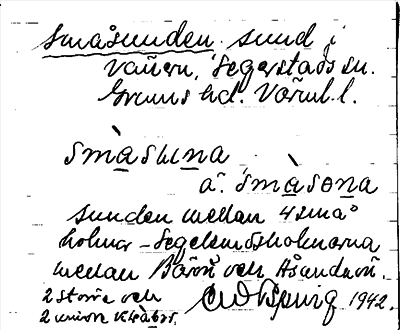 Småsunden sund i
Vänern, Segerstads sn.
Grums hd. Värml. l.
smàsuna
a. smàsona
sunden mellan 4 små
holmar – Segelsundsholmarna
mellan och Åsundaön.
2 större och
2 mindre 1942.